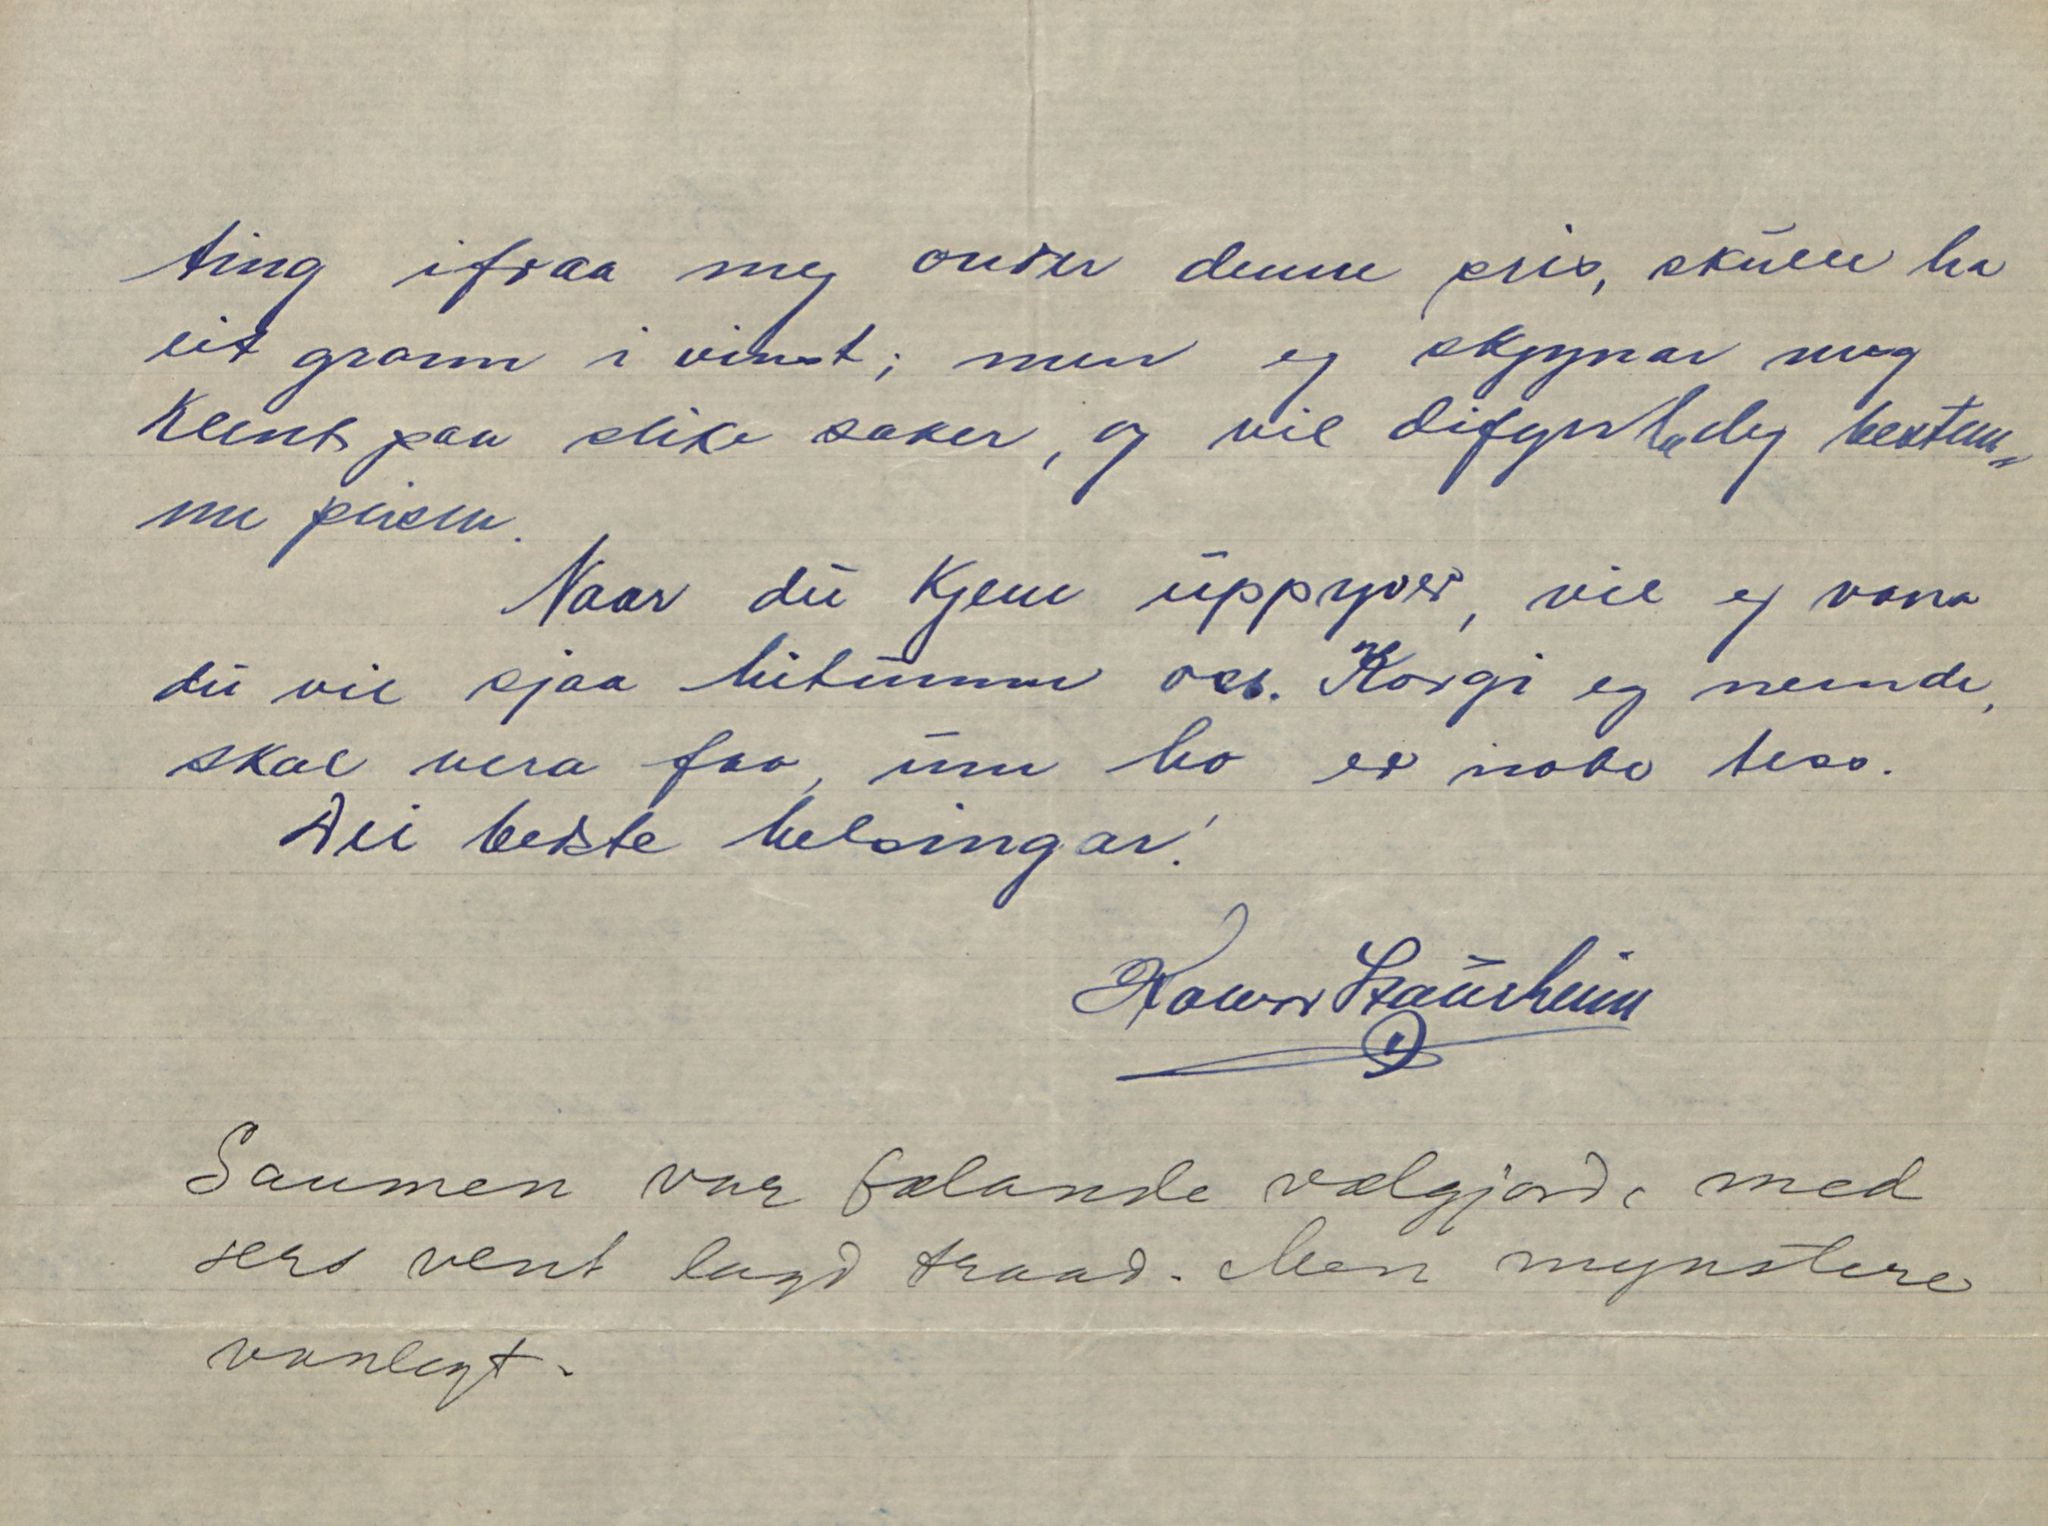 ting ifraa meg onder denne pris, skulle ha
eit grann i vinst; men eg skjynar meg
kleint paa slike saker, og vil difyr la deg bestem-
me prisen.
Naar du kjem uppyver, vil eg vona
du vil sjaa hitumm oss. Korgi eg nemde,
skal vera faa, um ho er noko tess.
Dei beste helsingar!
Staursheim
Saumen var falande velgjord, med
sers vent lagd traad. Men mynstere
vanlegt.